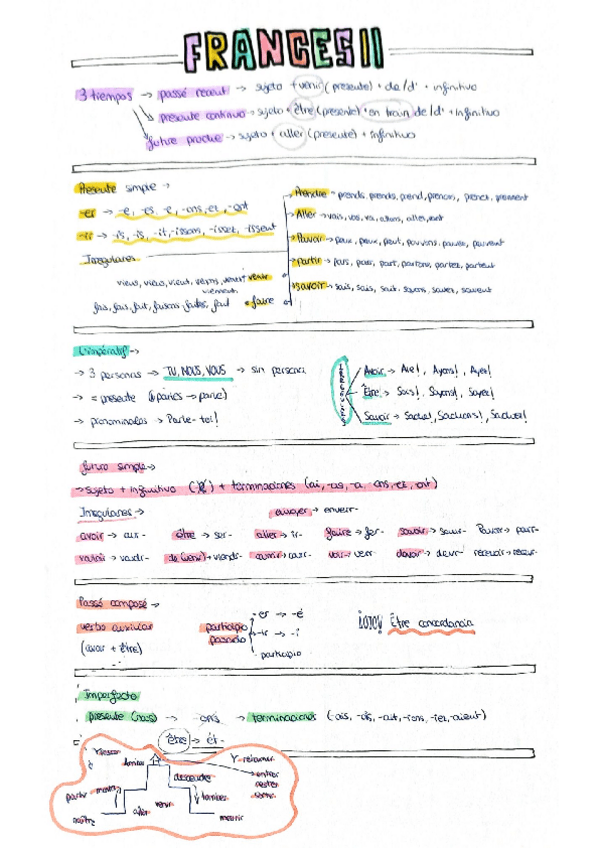 FRANCES II
3 tiempos → passé récent → sujeto + venir (presente) + de/d' + infinitivo
presente continuo → sujeto + être (presente) + en train de/d' + infinitivo
futur proche → sujeto + aller (presente) + infinitivo
Presente simple →
-er → -e, -es, -e, -ons, -ez, -ent
-ir → -is, -is, -it, -issons, -issez, -issent
Irregulares
viens, viens, vient, venons, venez, viennent venir
fais, fais, fait, faisons, faites, font faire
Prendre → prends, prends, prend, prenons, prenez, prennent
Aller → vais, vas, va, allons, allez, vont
Pouvoir → peux, peux, peut, pouvons, pouvez, peuvent
partir → pars, pars, part, partons, partez, partent
savoir → sais, sais, sait, savons, savez, savent
L'impératif →
→ 3 personas → TU, NOUS, VOUS → sin persona
→ = presente (parles → parle)
→ pronominados → Parle-toi!
Avoir → Aie!, Ayons!, Ayez!
Être → Sois!, Soyons!, Soyez!
Savoir → Sache!, Sachons!, Sachez!
futuro simple →
→ sujeto + infinitivo + terminaciones (ai, -as, -a, -ons, -ez, -ont)
Irregulares → envoyer → enverr-
avoir → aur- être → ser- aller → ir- faire → fer- savoir → saur- Pouvoir → pourr-
valoir → vaudr- venir → viendr- courir → courr- voir → verr- devoir → devr- recevoir → recevr-
Passé composé →
verbo auxiliar
(avoir + être)
participio pasado
-er → -é
-ir → -i
participio
¡OJO! Être concordancia
Imperfecto
presente (nous) → -ons → terminaciones (-ais, -ais, -ait, -ions, -iez, -aient)
être → ét-
monter
descendre
retourner
entrer
rester
sortir
partir
naître
aller
venir
tomber
mourir